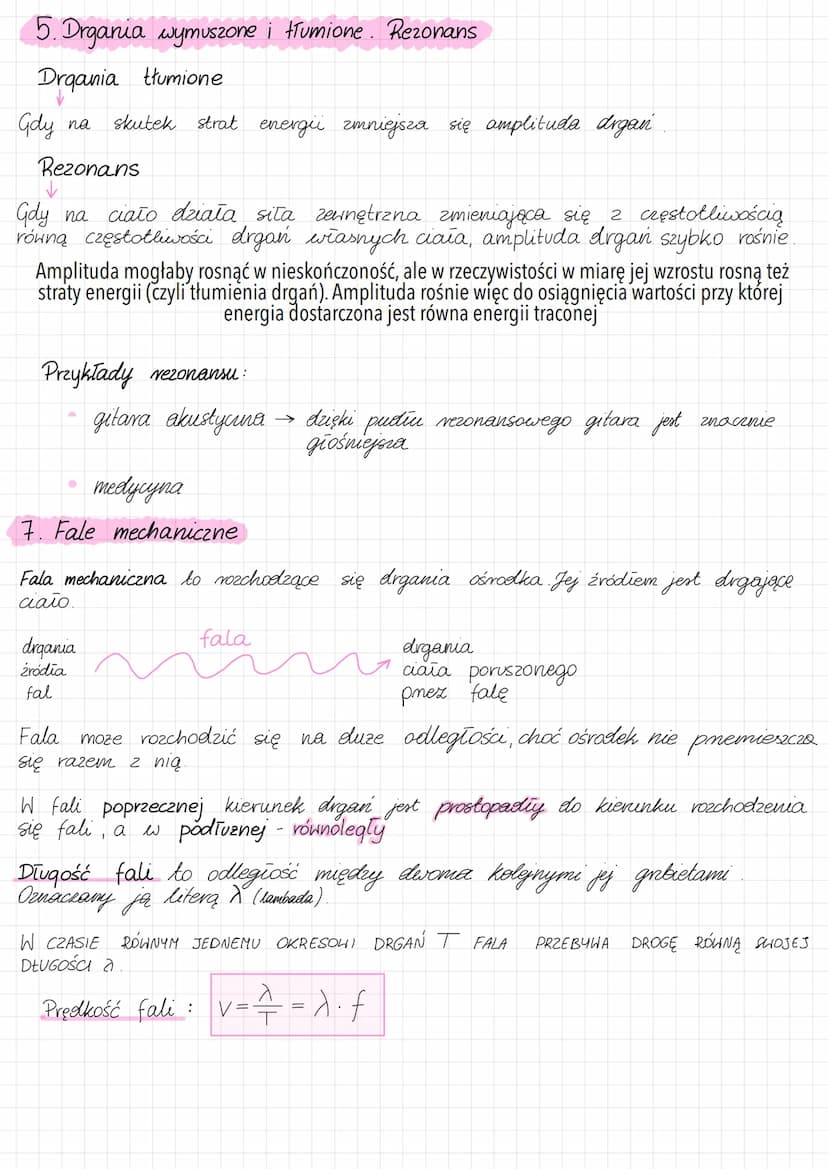 5. Drgania wymuszone i tłumione. Rezonans
Drgania tłumione
Gdy na skutek strat energii zmniejsza się amplituda drgań.
Rezonans
Gdy na ciało działa siła zewnętrzna zmieniająca się z częstotliwością
równą częstotliwości drgań własnych ciała, amplituda drgań szybko rośnie.
Amplituda mogłaby rosnąć w nieskończoność, ale w rzeczywistości w miarę jej wzrostu rosną też
straty energii (czyli tłumienia drgań). Amplituda rośnie więc do osiągnięcia wartości przy której
energia dostarczona jest równa energii traconej
Przykłady rezonansu:
• gitara akustyczna → dzięki pudłu rezonansowego gitara jest znacznie
głośniejsza
• medycyna
7. Fale mechaniczne
Fala mechaniczna to rozchodzące się drgania ośrodka. Jej źródłem jest drgające
ciało.
fala
drgania
źródła
fal
drgania
ciała poruszonego
przez falę
Fala może rozchodzić się na duże odległości, choć ośrodek nie przemieszcza
się razem z nią.
W fali poprzecznej kierunek drgań jest prostopadły do kierunku rozchodzenia
się fali, a w podłużnej - równoległy
Długość fali to odległość między dwoma kolejnymi jej grzbietami.
Oznaczamy ją literą λ (lambada).
W CZASIE RÓWNYM JEDNEMU OKRESOWI DRGAŃ T FALA PRZEBYWA DROGĘ RÓWNĄ SWOJEJ
DŁUGOŚCI λ.
Prędkość fali: v = λ/T = λ · f